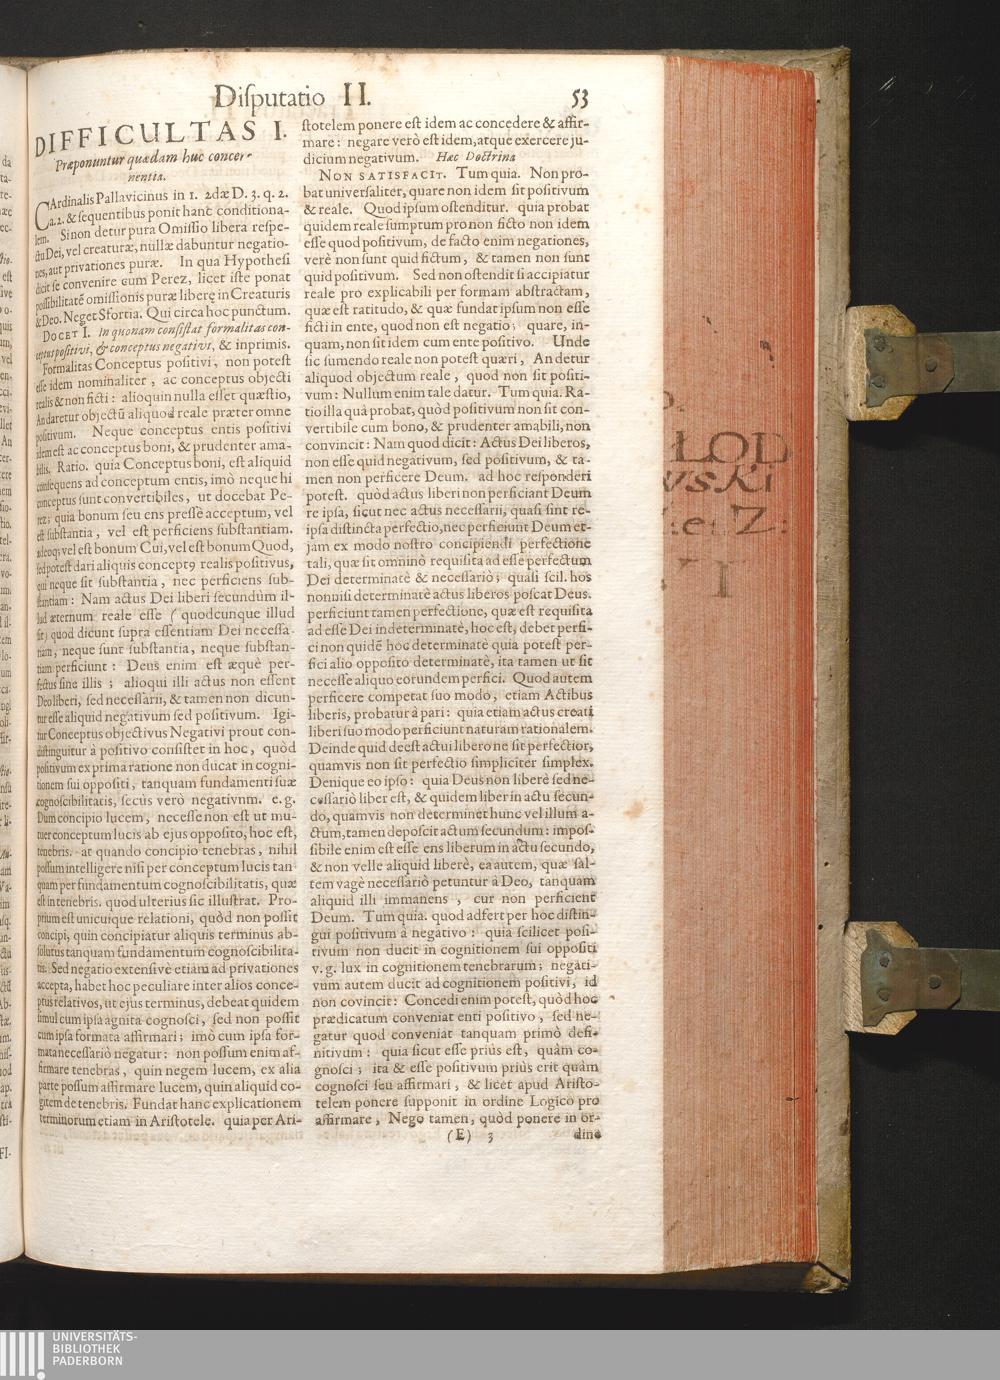 Disputatio II.
53
DIFFICULTAS I.
Præponuntur quædam huc concer-
nentia.
CArdinalis Pallavicinus in 1. 2dæ D. 3. q. 2.
a. 2. & sequentibus ponit hanc conditiona-
lem. Si non detur pura Omissio libera respe-
ctu Dei, vel creaturæ, nullæ dabuntur negatio-
nes, aut privationes puræ. In qua Hypothesi
dicit se convenire cum Perez, licet iste ponat
possibilitatē omissionis puræ liberę in Creaturis
& Deo. Neget Sfortia. Qui circa hoc punctum.
DOCET I. In quonam consistat formalitas con-
ceptus positivi, & conceptus negativi, & inprimis.
Formalitas Conceptus positivi, non potest
esse idem nominaliter, ac conceptus objecti
realis & non ficti: alioquin nulla esset quæstio,
An daretur objectū aliquod reale præter omne
positivum. Neque conceptus entis positivi
idem est ac conceptus boni, & prudenter ama-
bilis. Ratio. quia Conceptus boni, est aliquid
consequens ad conceptum entis, imò neque hi
conceptus sunt convertibiles, ut docebat Pe-
rez; quia bonum seu ens pressè acceptum, vel
est substantia, vel est perficiens substantiam.
adeoq; vel est bonum Cui, vel est bonum Quod,
sed potest dari aliquis concept9 realis positivus,
qui neque sit substantia, nec perficiens sub-
stantiam: Nam actus Dei liberi secundùm il-
lud æternum reale esse (quodcunque illud
sit) quod dicunt supra essentiam Dei necessa-
riam, neque sunt substantia, neque substan-
tiam perficiunt: Deus enim est æquè per-
fectus sine illis; alioqui illi actus non essent
Deo liberi, sed necessarii, & tamen non dicun-
tur esse aliquid negativum sed positivum. Igi-
tur Conceptus objectivus Negativi prout con-
distinguitur à positivo consistet in hoc, quòd
positivum ex prima ratione non ducat in cogni-
tionem sui oppositi, tanquam fundamenti suæ
cognoscibilitatis, secus verò negativnm. e. g.
Dum concipio lucem, necesse non est ut mu-
tuer conceptum lucis ab ejus opposito, hoc est,
tenebris. at quando concipio tenebras, nihil
possum intelligere nisi per conceptum lucis tan
quam per fundamentum cognoscibilitatis, quæ
est in tenebris. quod ulterius sic illustrat. Pro-
prium est unicuique relationi, quòd non possit
concipi, quin concipiatur aliquis terminus ab-
solutus tanquam fundamentum cognoscibilita-
tis. Sed negatio extensivè etiam ad privationes
accepta, habet hoc peculiare inter alios conce-
ptus relativos, ut ejus terminus, debeat quidem
simul cum ipsa agnita cognosci, sed non possit
cum ipsa formata affirmari; imò cum ipsa for-
mata necessariò negatur: non possum enim af-
firmare tenebras, quin negem lucem, ex alia
parte possum affirmare lucem, quin aliquid co-
gitem de tenebris. Fundat hanc explicationem
terminorum etiam in Aristotele. quia per Ari-
stotelem ponere est idem ac concedere & affir-
mare: negare verò est idem, atque exercere ju-
dicium negativum. Hæc Doctrina
NON SATISFACIT. Tum quia. Non pro-
bat universaliter, quare non idem sit positivum
& reale. Quod ipsum ostenditur. quia probat
quidem reale sumptum pro non ficto non idem
esse quod positivum, de facto enim negationes,
verè non sunt quid fictum, & tamen non sunt
quid positivum. Sed non ostendit si accipiatur
reale pro explicabili per formam abstractam,
quæ est ratitudo, & quæ fundat ipsum non esse
ficti in ente, quod non est negatio; quare, in-
quam, non sit idem cum ente positivo. Unde
sic sumendo reale non potest quæri, An detur
aliquod objectum reale, quod non sit positi-
vum: Nullum enim tale datur. Tum quia. Ra-
tio illa quâ probat, quòd positivum non sit con-
vertibile cum bono, & prudenter amabili, non
convincit: Nam quod dicit: Actus Dei liberos,
non esse quid negativum, sed positivum, & ta-
men non perficere Deum. ad hoc responderi
potest. quòd actus liberi non perficiant Deum
re ipsa, sicut nec actus necessarii, quasi sint re-
ipsa distincta perfectio, nec perficiunt Deum et-
jam ex modo nostro concipiendi perfectione
tali, quæ sit omninò requisita ad esse perfectum
Dei determinatè & necessariò; quasi scil. hos
nonnisi determinatè actus liberos poscat Deus.
perficiunt tamen perfectione, quæ est requisita
ad esse Dei indeterminatè, hoc est, debet perfi-
ci non quidē hoc determinatè quia potest per-
fici alio opposito determinatè, ita tamen ut sit
necesse aliquo eorundem perfici. Quod autem
perficere competat suo modo, etiam Actibus
liberis, probatur à pari: quia etiam actus creati
liberi suo modo perficiunt naturam rationalem.
Deinde quid deest actui libero ne sit perfectior,
quamvis non sit perfectio simpliciter simplex.
Denique eo ipso: quia Deus non liberè sed ne-
cessariò liber est, & quidem liber in actu secun-
do, quamvis non determinet hunc vel illum a-
ctum, tamen deposcit actum secundum: impos-
sibile enim est esse ens liberum in actu secundo,
& non velle aliquid liberè, ea autem, quæ sal-
tem vagè necessariò petuntur à Deo, tanquam
aliquid illi immanens, cur non perficient
Deum. Tum quia. quod adfert per hoc distin-
gui positivum à negativo: quia scilicet posi-
tivum non ducit in cognitionem sui oppositi
v. g. lux in cognitionem tenebrarum; negati-
vum autem ducit ad cognitionem positivi, id
non covincit: Concedi enim potest, quòd hoc
prædicatum conveniat enti positivo, sed ne-
gatur quod conveniat tanquam primò defi-
nitivum: quia sicut esse priùs est, quàm co-
gnosci; ita & esse positivum priùs erit quàm
cognosci seu affirmari, & licet apud Aristo-
telem ponere supponit in ordine Logico pro
affirmare, Nego tamen, quòd ponere in or-
(E) 3
dine
LOD
WSKI
et Z:
UNIVERSITÄTS-
BIBLIOTHEK
PADERBORN